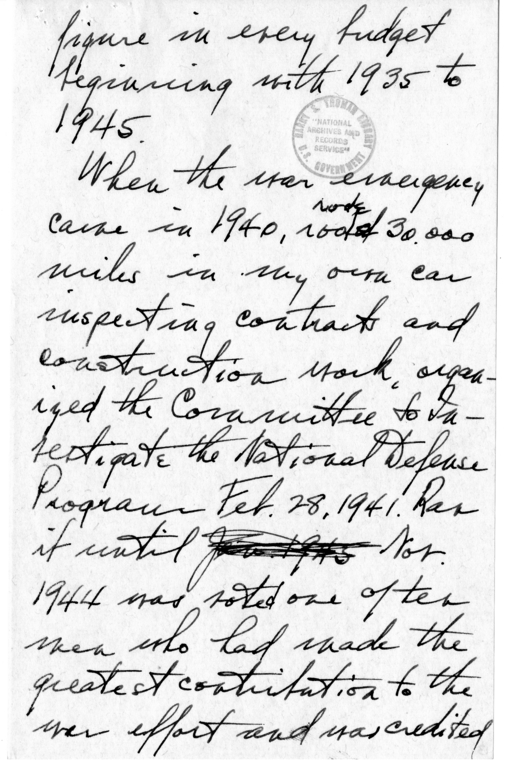 figure in every budget
beginning with 1935 to
1945.
HARRY S. TRUMAN LIBRARY
"NATIONAL
ARCHIVES AND
RECORDS
SERVICE"
U.S. GOVERNMENT
When the war emergency
rode
came in 1940, 30,000
miles in my own car
inspecting contracts and
construction work, organ-
ized the Committee to In-
vestigate the National Defense
Program Feb. 28, 1941. Ran
it until Jan. 1945 Nov.
1944 was voted one of ten
men who had made the
greatest contribution to the
war effort and was credited